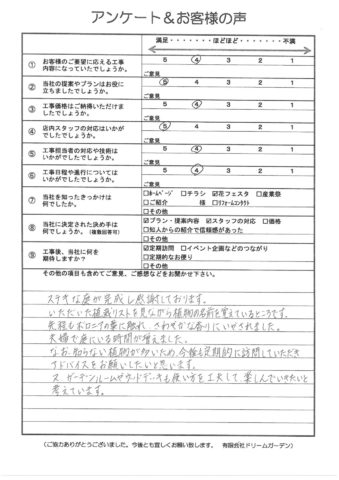 アンケート＆お客様の声
満足・・・・・・・ほどほど・・・・・・・不満
① お客様のご要望に応える工事内容になっていたでしょうか。 5 4 3 2 1
ご意見
② 当社の提案やプランはお役に立ちましたでしょうか。 5 4 3 2 1
ご意見
③ 工事価格はご納得いただけましたでしょうか。 5 4 3 2 1
ご意見
④ 店内スタッフの対応はいかがでしたでしょうか。 5 4 3 2 1
ご意見
⑤ 工事担当者の対応や技術はいかがでしたでしょうか。 5 4 3 2 1
ご意見
⑥ 工事日程や進行についてはいかがでしたでしょうか。 5 4 3 2 1
ご意見
⑦ 当社を知ったきっかけは何でしたか。 □ホームページ □チラシ ☑花フェスタ □産業祭
□ご紹介 様 □リフォームコンタクト
□その他
⑧ 当社に決定された決め手は何でしょうか。（複数回答可） ☑プラン・提案内容 ☑スタッフの対応 □価格
□知人からの紹介で信頼感があった
□その他
⑨ 工事後、当社に何を期待しますか？ ☑定期訪問 □イベント企画などのつながり
□定期的なお便り
□その他
その他の項目も含めてご意見、ご感想などをお聞かせ下さい。
ステキな庭が完成し感謝しております。
いただいた植栽リストを見ながら植物の名前を覚えているところです。
先程もボロニアの葉に触れ、さわやかな香りにいやされました。
夫婦で庭にいる時間が増えました。
なお、知らない植物が多いため、今後も定期的に訪問していただき
アドバイスをお願いしたいと思います。
又、ガーデンルームやウッドデッキも使い方を工夫して楽しんでいきたいと
考えています。
（ご協力ありがとうございました。今後とも宜しくお願い致します。 有限会社ドリームガーデン）